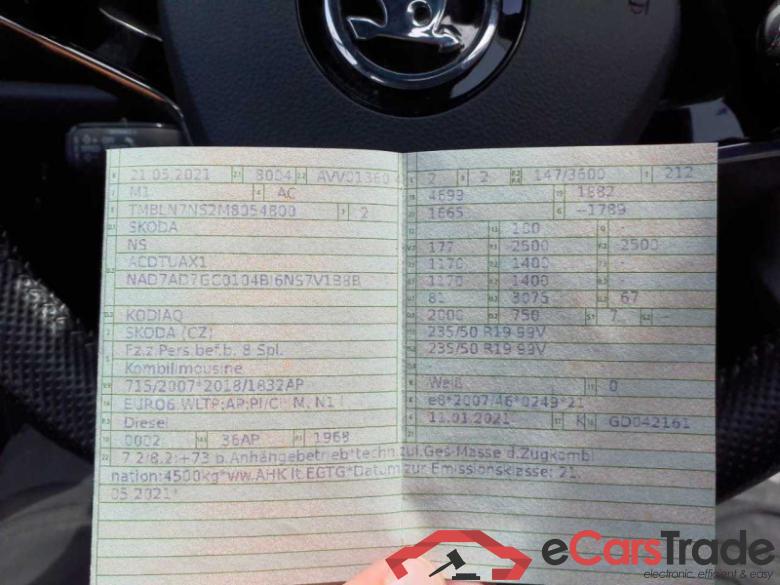 21.05.2021 8004 AVV01360
M1 AC
TMBLN7NS2M8054800 2
SKODA
NS
ACDTUAX1
KODIAQ
SKODA (CZ)
Fz.z.Pers.bef.b. 8 Spl.
Kombilimousine
715/2007*2018/1832AP
EURO6 WLTP;AP;PI/CI M, N1 I
Diesel
0002 36AP 1968
2 2 147/3600 212
4699 1882
1665 -1789
180 -
177 2500 2500
1170 1400 -
1170 1400 -
81 3075 67
2000 750 7 -
235/50 R19 99V
235/50 R19 99V
Weiß 0
e8*2007/46*0249*21
11.01.2021 K GD042161
7.2/8.2:+73 b.Anhängebetrieb*techn.zul.Ges-Masse d.Zugkombi
nation:4500kg*v/w.AHK lt.EGTG*Datum zur Emissionsklasse: 21
05.2021*
eCarsTrade
electronic, efficient & easy